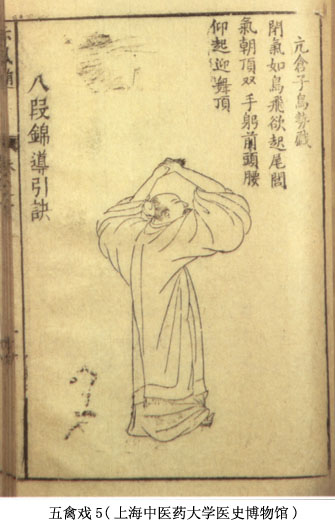 亢倉子鳥勢戲
閉氣如鳥飛欲起尾閭
氣朝頂双手躬前頭腰
仰起迎舞頂
八段錦導引訣
五禽戏5(上海中医药大学医史博物馆)